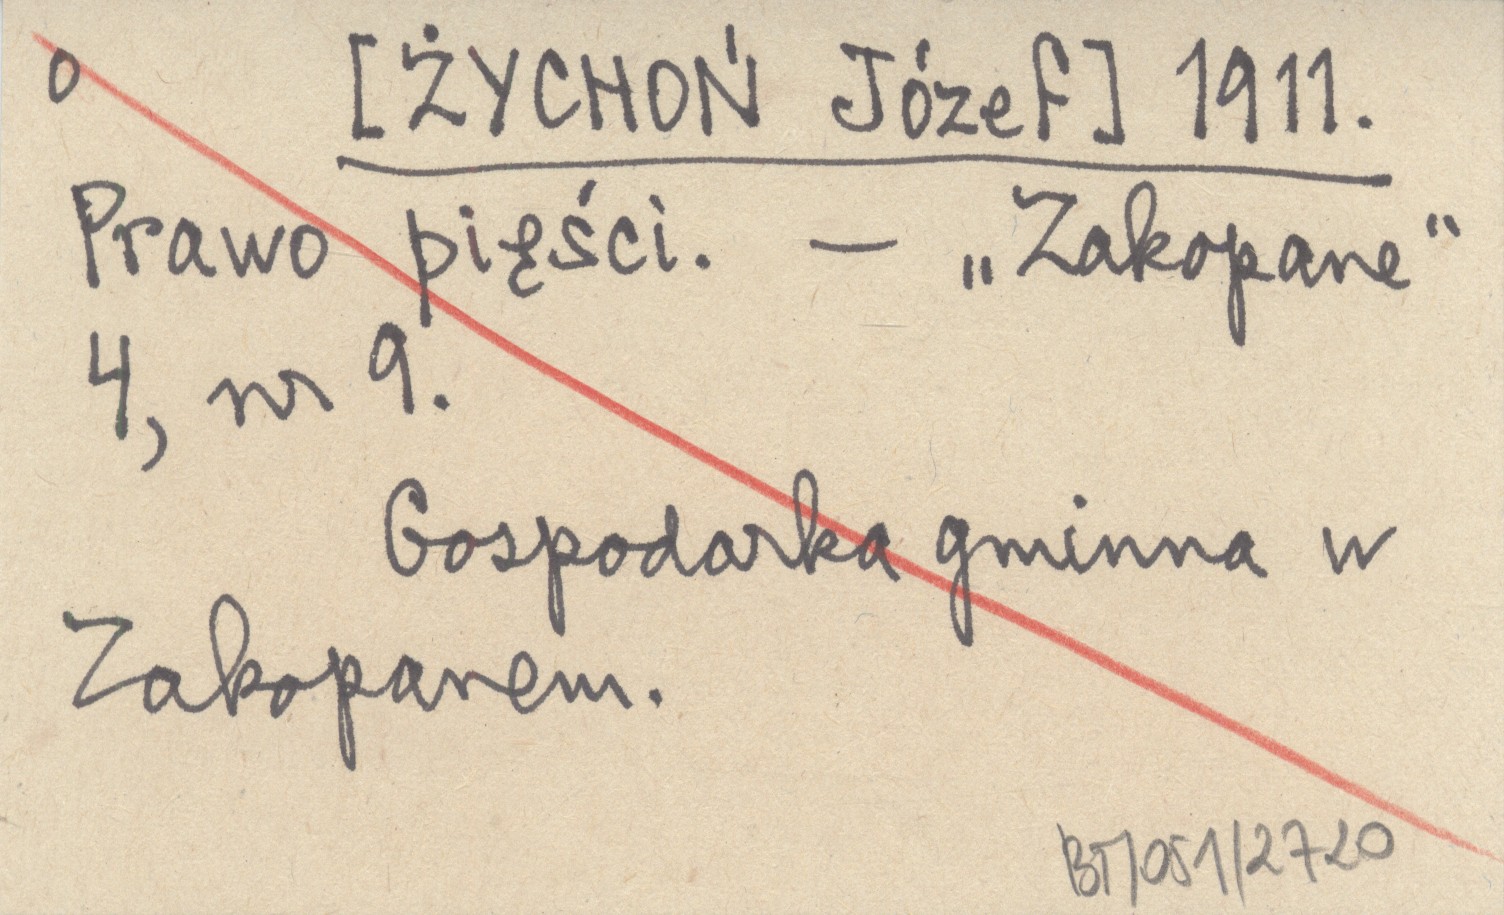 o [ŻYCHOŃ Józef] 1911.
Prawo pięści. — „Zakopane“
4, nr 9.
Gospodarka gminna w
Zakopanem.
BT/051/2720